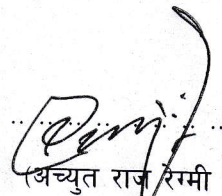 (अच्युत राज रेग्मी